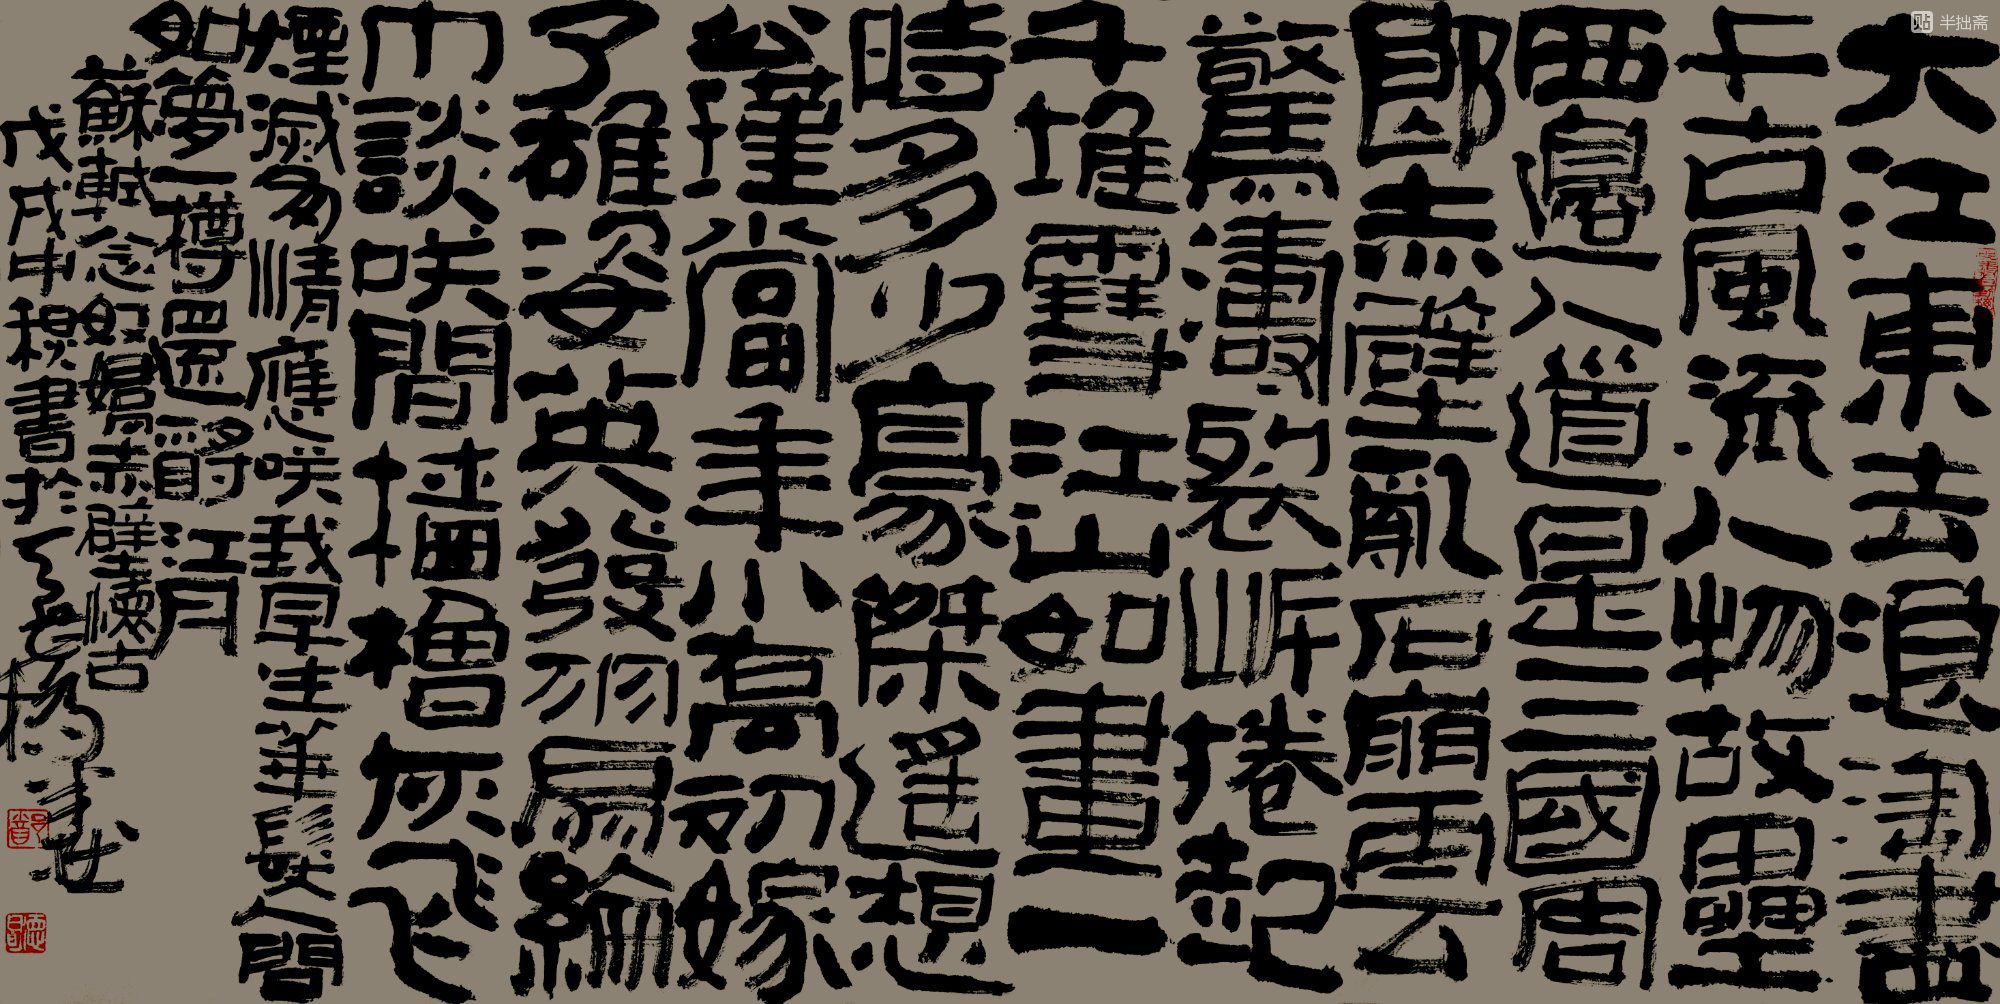 大江東去浪淘盡
千古風流人物故壘
西邊人道是三國周
郎赤壁亂石崩雲
驚濤裂岸捲起
千堆雪江山如畫一
時多少豪傑遥想
公瑾當年小喬初嫁
了雄姿英發羽扇綸
巾談咲間檣櫓灰飛
煙滅多情應咲我早生華髮人間
如夢一樽還酹江月
蘇軾念奴嬌赤壁懷古
戊戌中秋書於
貼 半拙斋